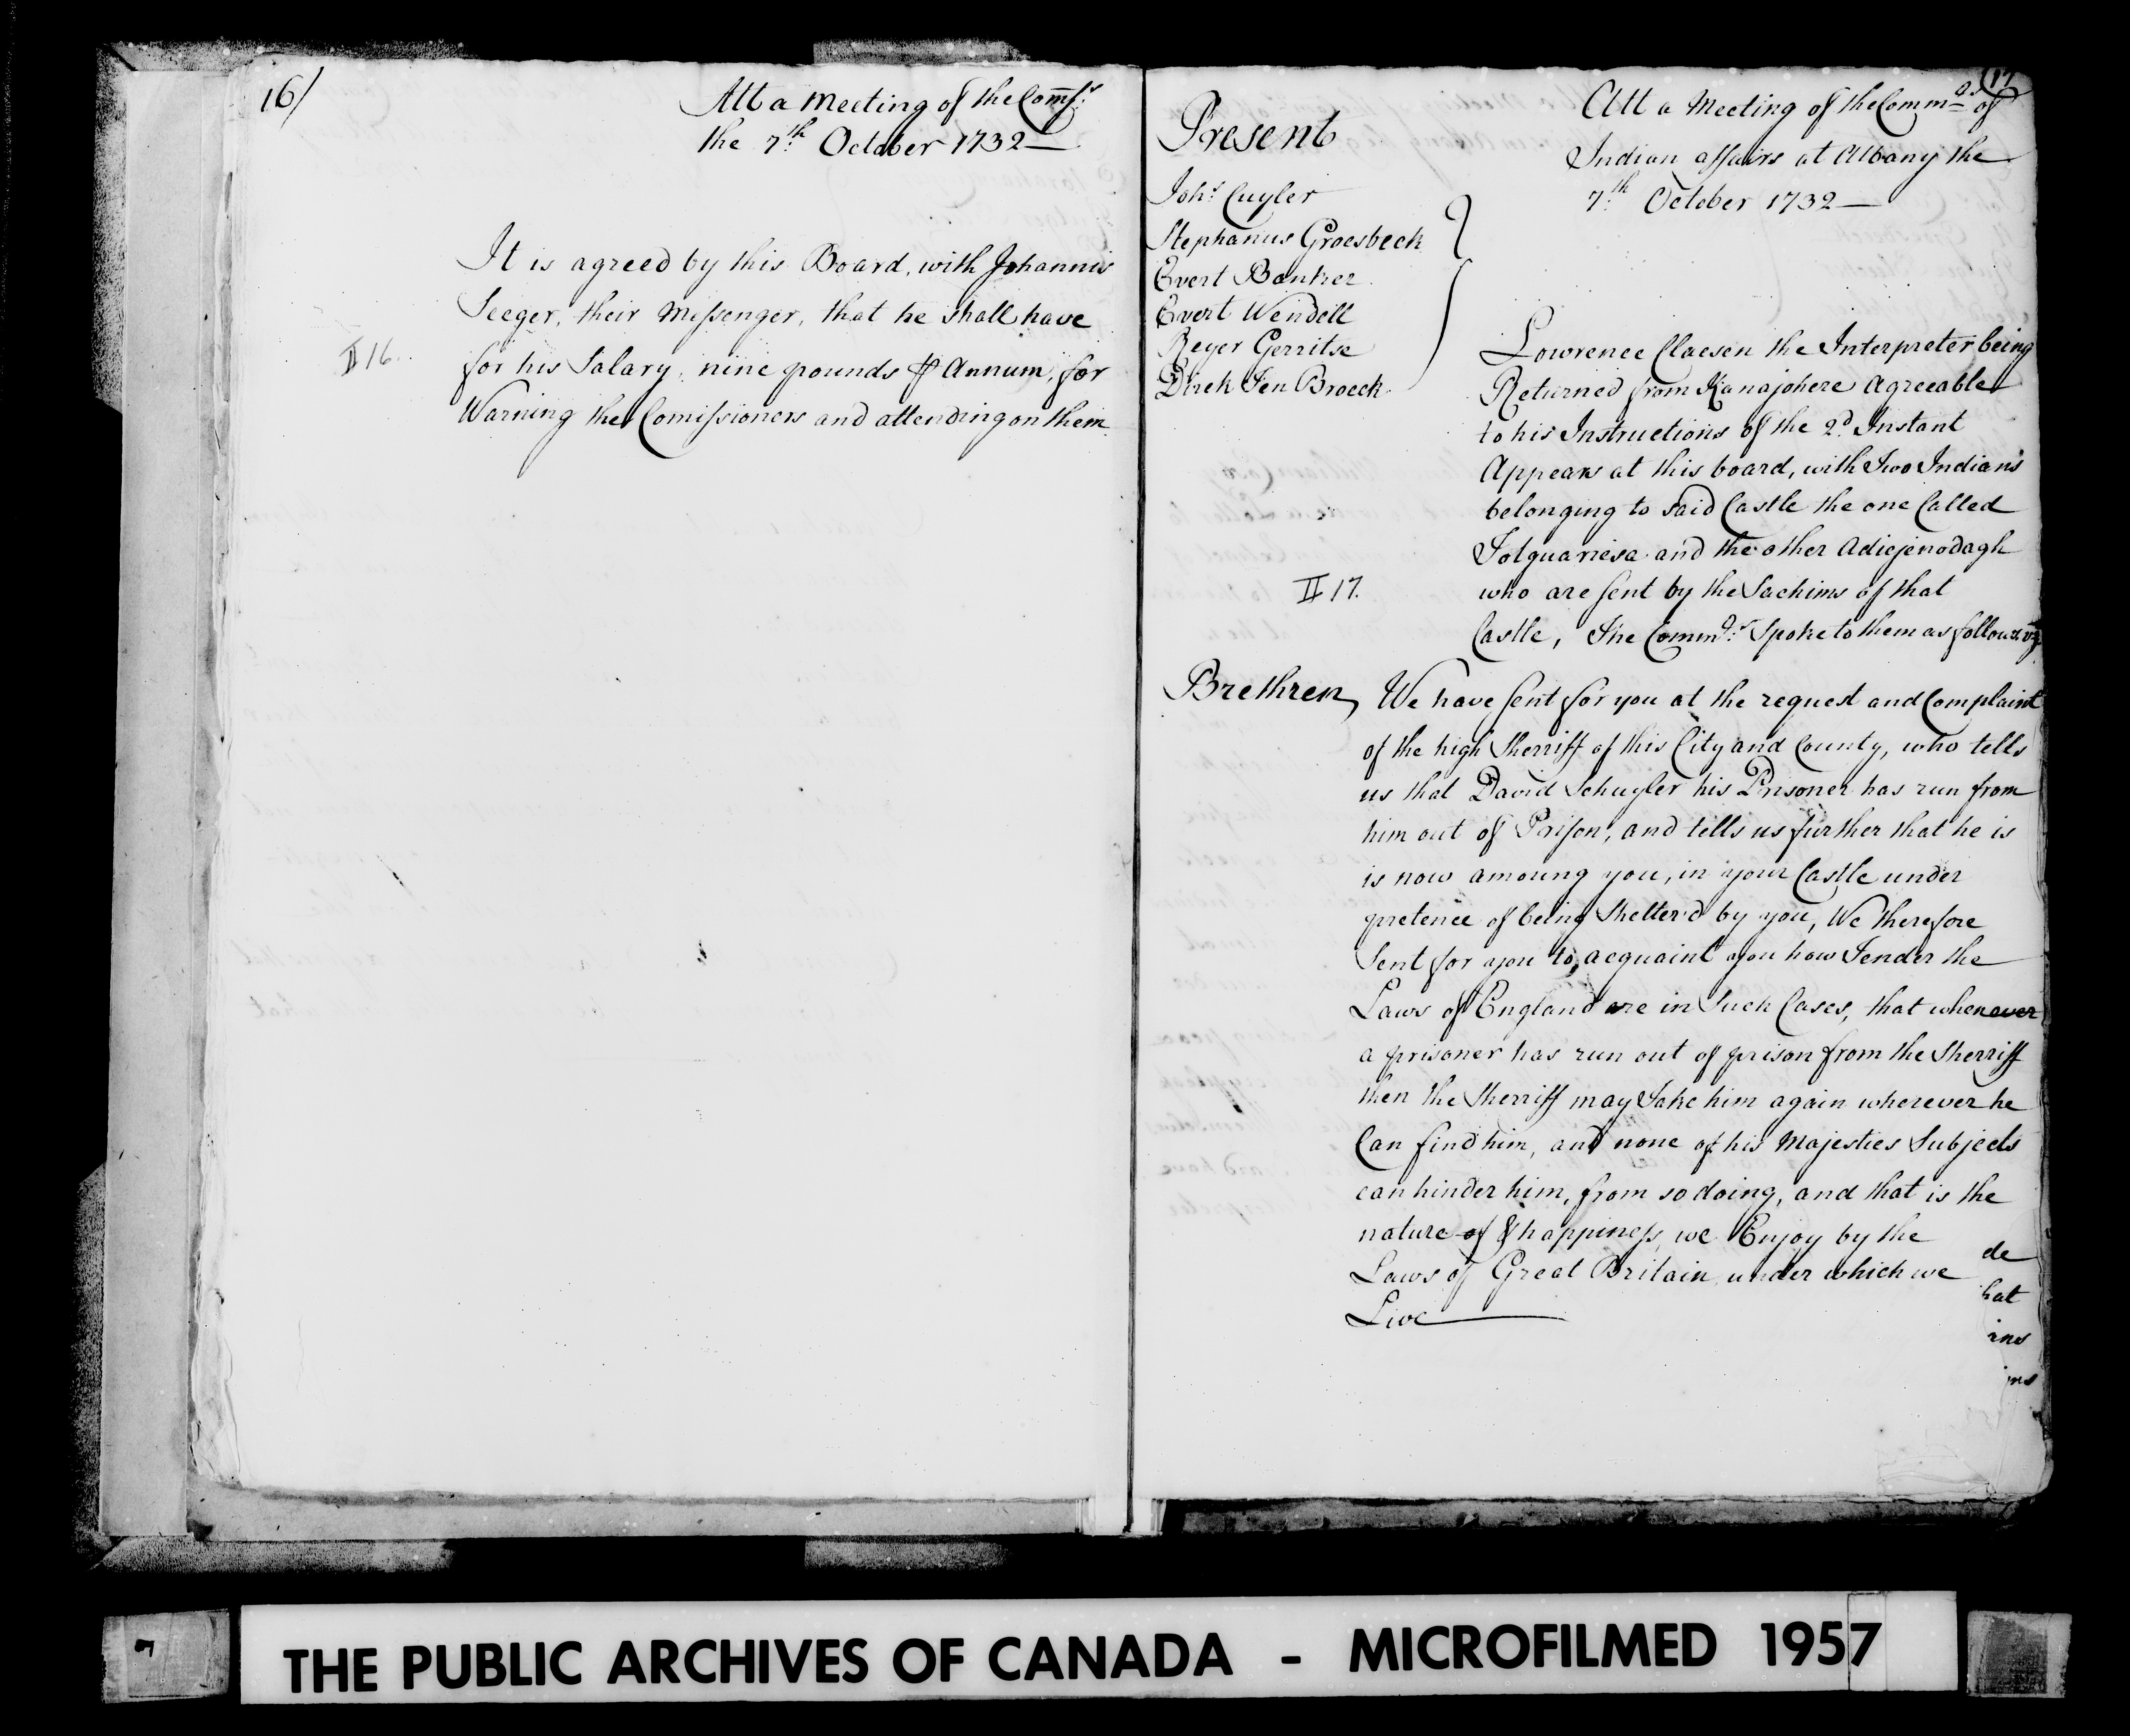 16/
Att a Meeting of the Comss.rs
the 7.th October 1732—
It is agreed by this Board, with Johannis
Seeger, their Messenger, that he shall have
II 16.
for his Salary, nine pounds ⅌ Annum, for
Warning the Comissioners and attending on them
17
Att a Meeting of the Comm.rs of
Indian affairs at Albany the
7.th October 1732—
Present
Joh.s Cuyler
Stephanus Groesbeck
Evert Banker
Evert Wendell
Reyer Gerritse
Dirck Ten Broeck
Lowrence Claesen the Interpreter being
Returned from Kanajohere Agreeable
to his Instructions of the 2.d Instant
Appears at this board, with Two Indians
belonging to said Castle the one Called
Tolquariesa and the other Adiejenodagh
II 17.
who are sent by the Sachims of that
Castle, The Comm.rs Spoke to them as follows viz
Brethren, We have sent for you at the request and Complaint
of the high Sherriff of this City and County, who tells
us that David Schuyler his Prisoner has run from
him out of Prison, and tells us further that he is
is now amoung you, in your Castle under
pretence of being Shelter'd by you, We therefore
Sent for you to acquaint you how Tender the
Laws of England are in Such Cases, that whenever
a prisoner has run out of prison from the Sherriff
then the Sherriff may Take him again wherever he
Can find him, and none of his Majesties Subjects
can hinder him, from so doing, and that is the
nature of & happiness we Enjoy by the
Laws of Great Britain under which we
Live
de
hat
ins
ins
7
THE PUBLIC ARCHIVES OF CANADA - MICROFILMED 1957